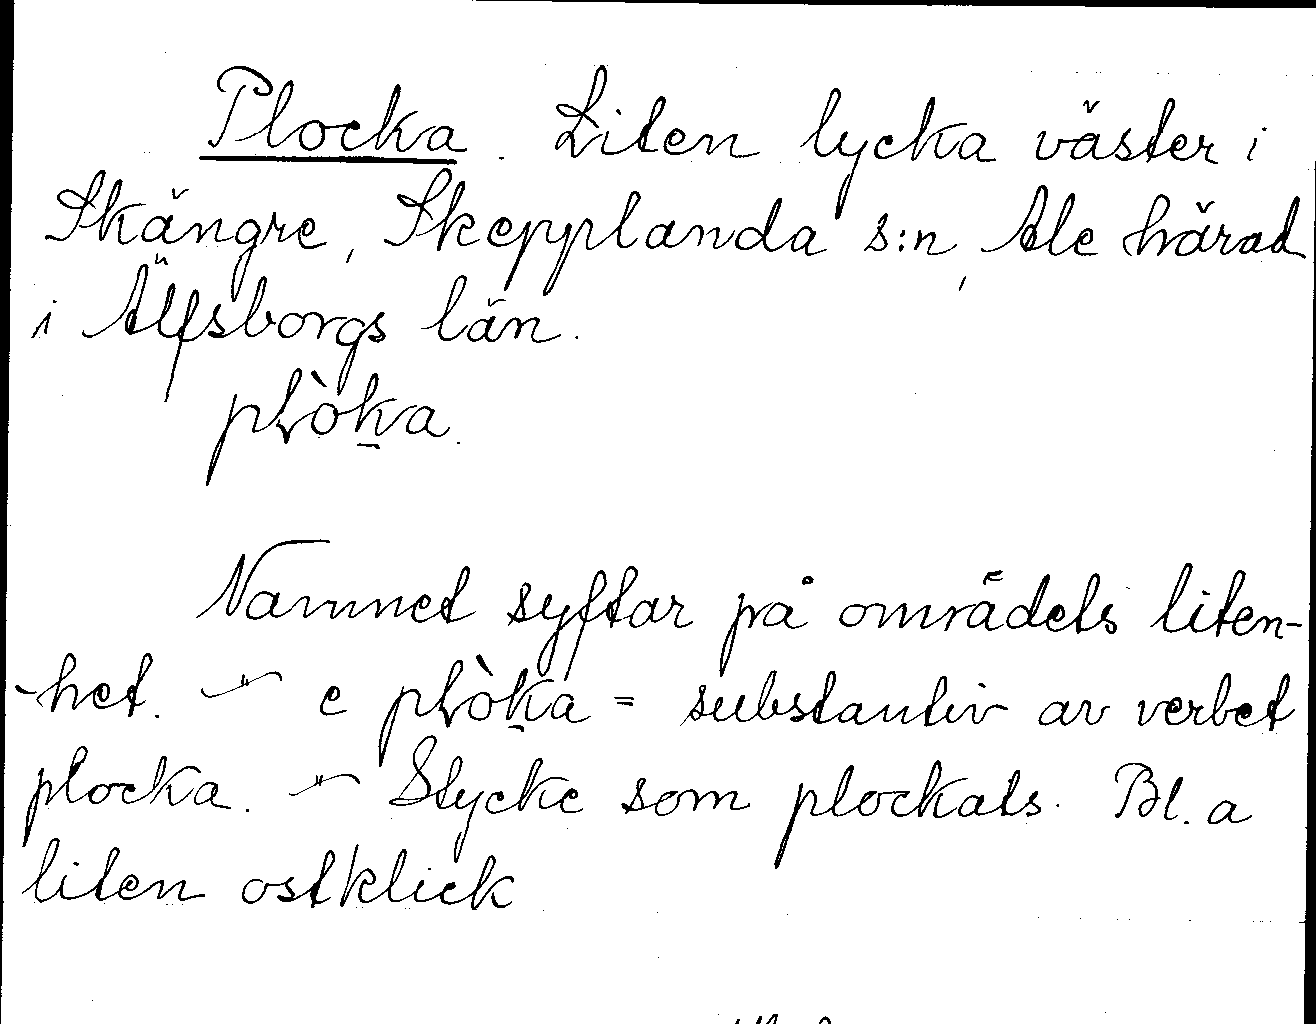 Plocka. Liten lycka väster i
Skängre, Skepplanda s:n, Ale härad
i Älfsborgs län.
plòka.
Namnet syftar på områdets liten-
-het. –"– e plòka = substantiv av verbet
plocka. –"– Stycke som plockats. Bl. a
liten ostklick